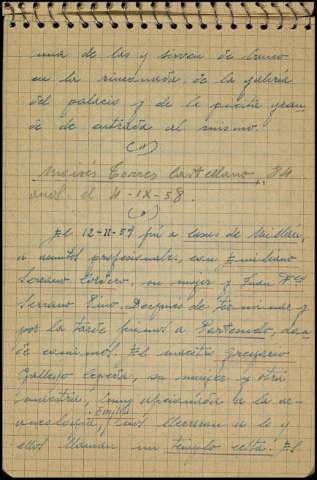 una de las y sirven de banco
en la rinconada de la galería
del palacio y de la puerta gran
de de entrada al mismo.
(")
Moisés Torres Castellano, 84
años. el 4-IX-58.
(")
El 12-II-59 fui a Casas de Millán,
a asuntos profesionales, con Emiliano
Serrano Cordero, su mujer y Juan Mª
Serrano Pino. Después de terminar y
por la tarde fuimos a Portezuelo, don
de comimos. El maestro Gregorio
Gallego Cepeda, su mujer y otra
maestra, muy aficionada a la ar-
queología, Emilia
ellos llaman un templo celta. El